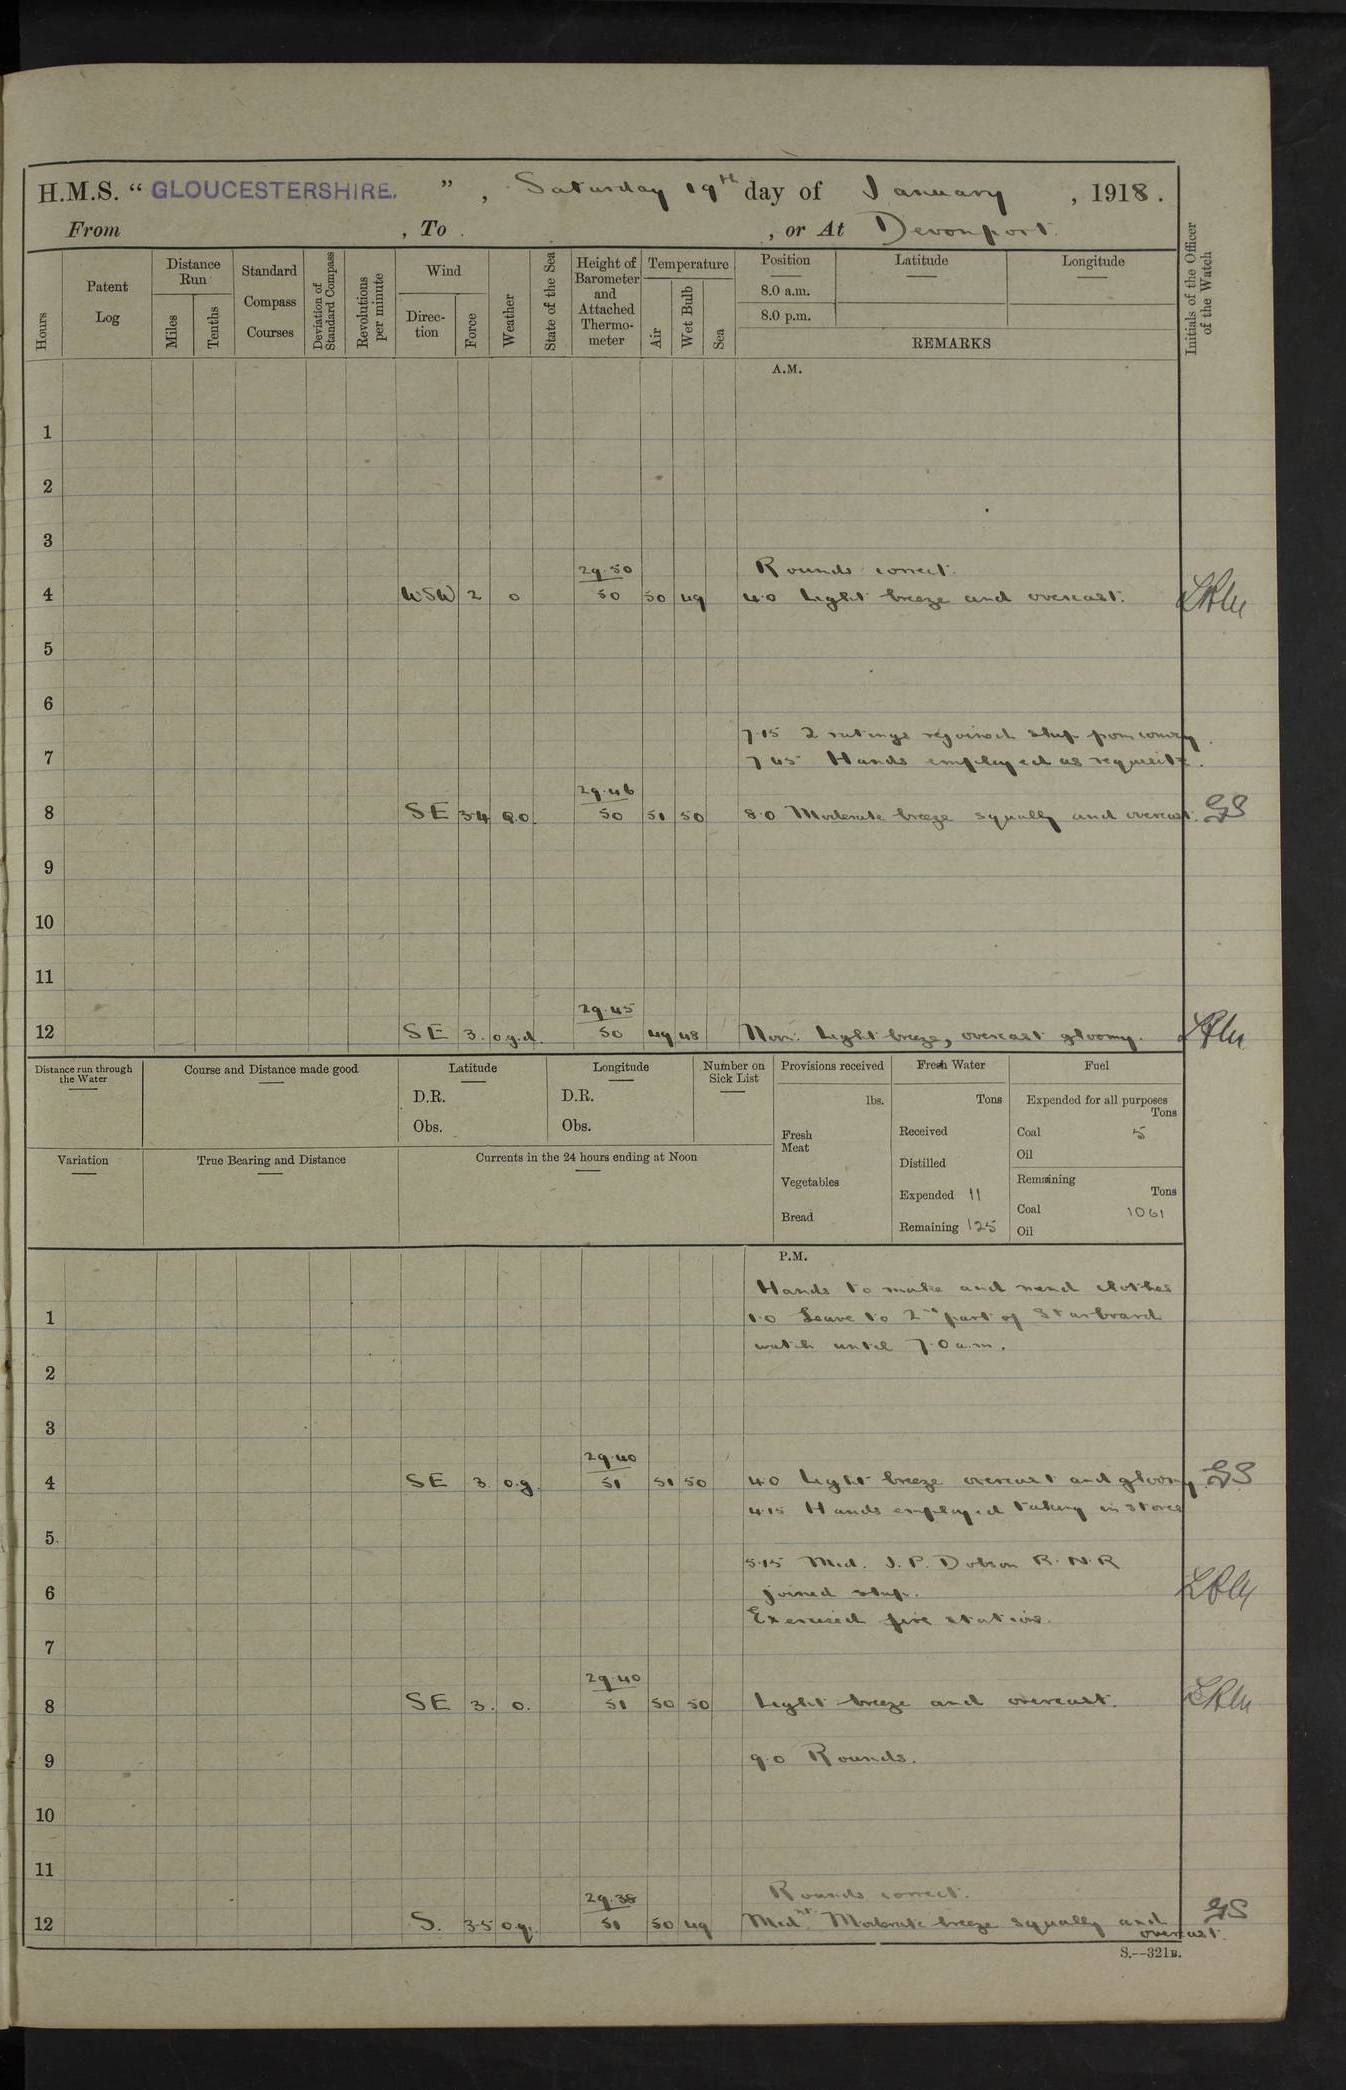 H.M.S. “ GLOUCESTERSHIRE. ” , Saturday 19th day of January , 1918 .
From , To . , or At Devonport.
Hours
Patent Log
Distance Run
Miles
Tenths
Standard Compass Courses
Deviation of Standard Compass
Revolutions per minute
Wind
Direc-tion
Force
Weather
State of the Sea
Height of Barometer and Attached Thermo-meter
Temperature
Air
Wet Bulb
Sea
Position
8.0 a.m.
8.0 p.m.
Latitude
Longitude
REMARKS
Initials of the Officer of the Watch
A.M.
1
2
3
29.50 Rounds correct.
4 WSW 2 o 50 50 49 4.0 Light breeze and overcast.
5
6
7.15 2 ratings rejoined ship from convoy.
7 7 45 Hands employed as requisite.
29.46
8 SE 3.4 Q.O. 50 51 50 8.0 Moderate breeze squally and overcast. GS
9
10
11
29.45
12 SE 3. o.g.d. 50 49 48 Noon. Light breeze, overcast gloomy.
Distance run through the Water
Course and Distance made good
Latitude
D.R.
Obs.
Longitude
D.R.
Obs.
Number on Sick List
Provisions received
lbs.
Fresh Meat
Vegetables
Bread
Fresh Water
Tons
Received
Distilled
Expended 11
Remaining 125
Fuel
Expended for all purposes
Tons
Coal 5
Oil
Remaining
Tons
Coal 1061
Oil
Variation
True Bearing and Distance
Currents in the 24 hours ending at Noon
P.M.
Hands to make and mend clothes
1 1.0 Leave to 2nd part of Starboard
watch until 7.0 a.m.
2
3
29.40
4 SE 3. o.g. 51 51 50 4.0 Light breeze overcast and gloomy. GS
4.15 Hands employed taking in stores
5.
5.15 Mid. J. P. Dobson R.N.R
6 joined ship.
Exercised fire stations.
7
29.40
8 SE 3. o. 51 50 50 Light breeze and overcast.
9 9.0 Rounds.
10
11
29.38 Rounds correct.
12 S. 3.5 o.q. 51 50 49 Midnt. Moderate breeze squally and overcast. GS
S.--321B.